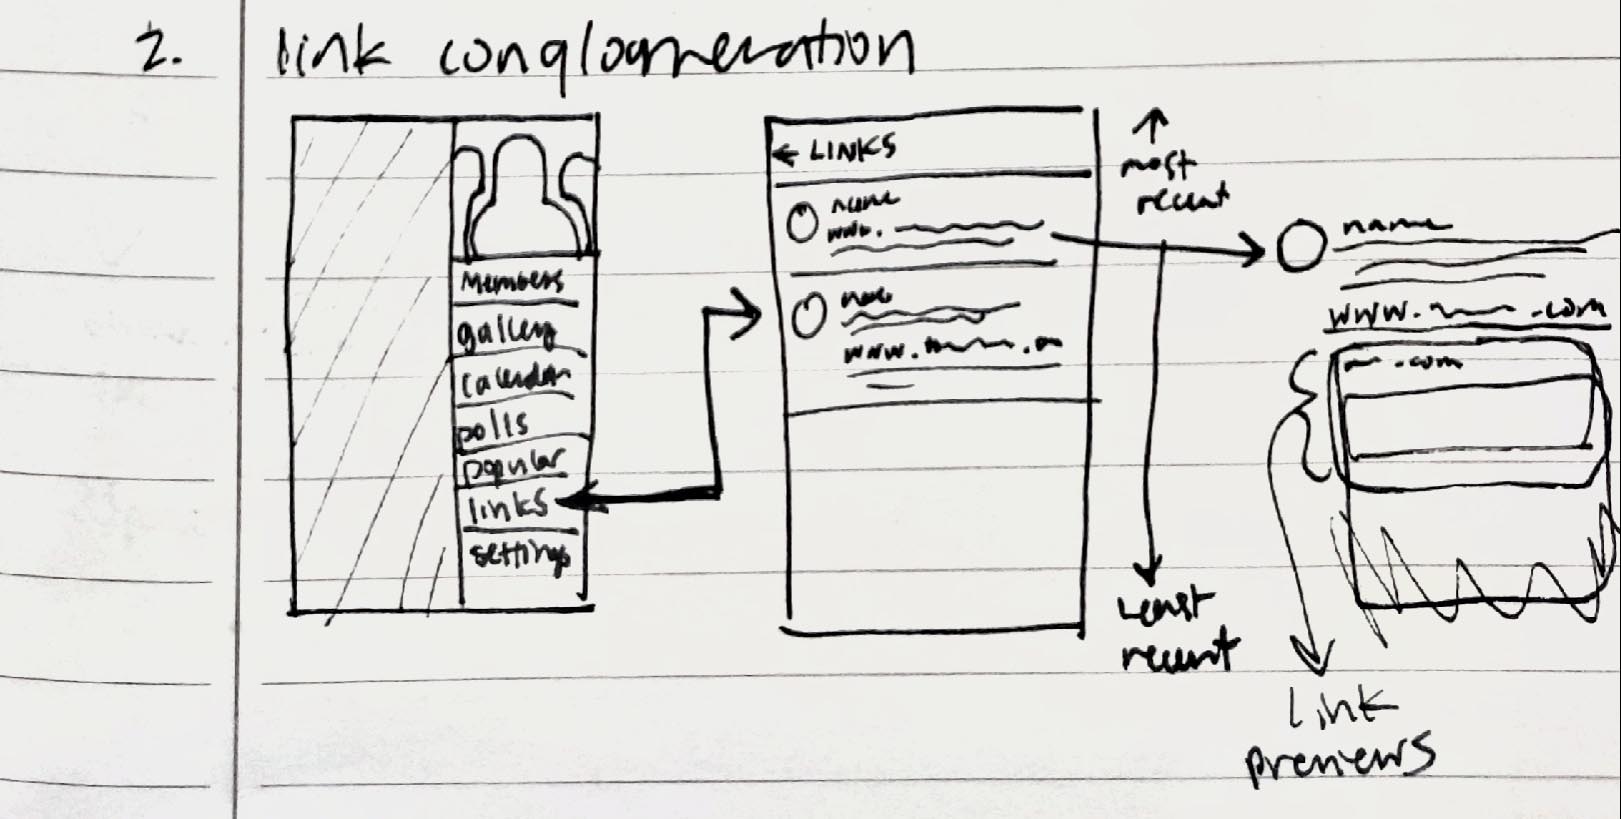 2. link conglomeration
Members
gallery
calendar
polls
popular
links
settings
← LINKS
name
www.
name
www.
most
recent
Least
recent
name
www. .com
.com
Link
previews